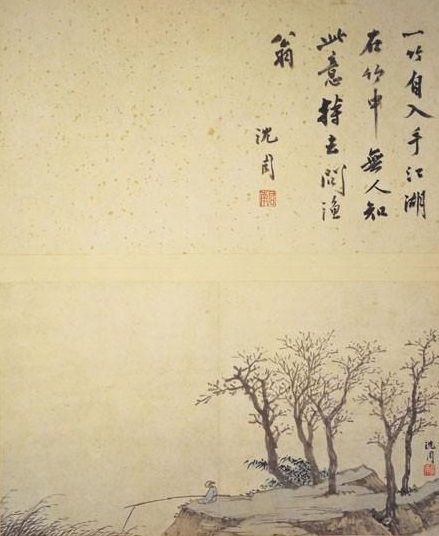 一竹自入手江湖
在竹中無人知
此意掉去問漁
翁
沈周
沈周